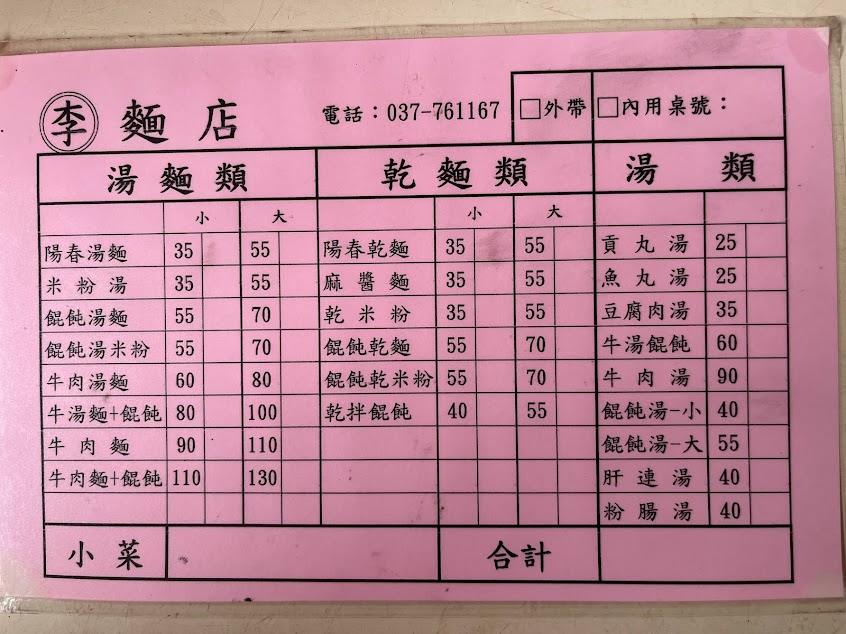 李 麵店 電話：037-761167 □外帶 □內用桌號：
湯麵類 乾麵類 湯類
小 大 小 大
陽春湯麵 35 55 陽春乾麵 35 55 貢丸湯 25
米粉湯 35 55 麻醬麵 35 55 魚丸湯 25
餛飩湯麵 55 70 乾米粉 35 55 豆腐肉湯 35
餛飩湯米粉 55 70 餛飩乾麵 55 70 牛湯餛飩 60
牛肉湯麵 60 80 餛飩乾米粉 55 70 牛肉湯 90
牛湯麵+餛飩 80 100 乾拌餛飩 40 55 餛飩湯-小 40
牛肉麵 90 110 餛飩湯-大 55
牛肉麵+餛飩 110 130 肝連湯 40
粉腸湯 40
小菜 合計